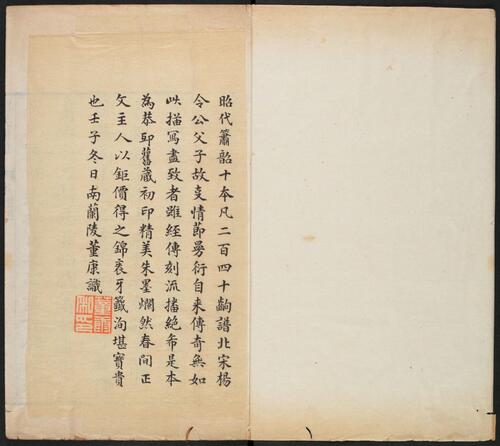 昭代簫韶十本凡二百四十齣譜北宋楊
令公父子故叓情節曼衍自来傳奇無如
此描寫盡致者雖經傳刻流播絕希是本
為恭邸舊蔵初印精美朱墨爛然春間正
文主人以鉅價得之錦裹牙籤洵堪寳貴
也壬子冬日南蘭陵董康識